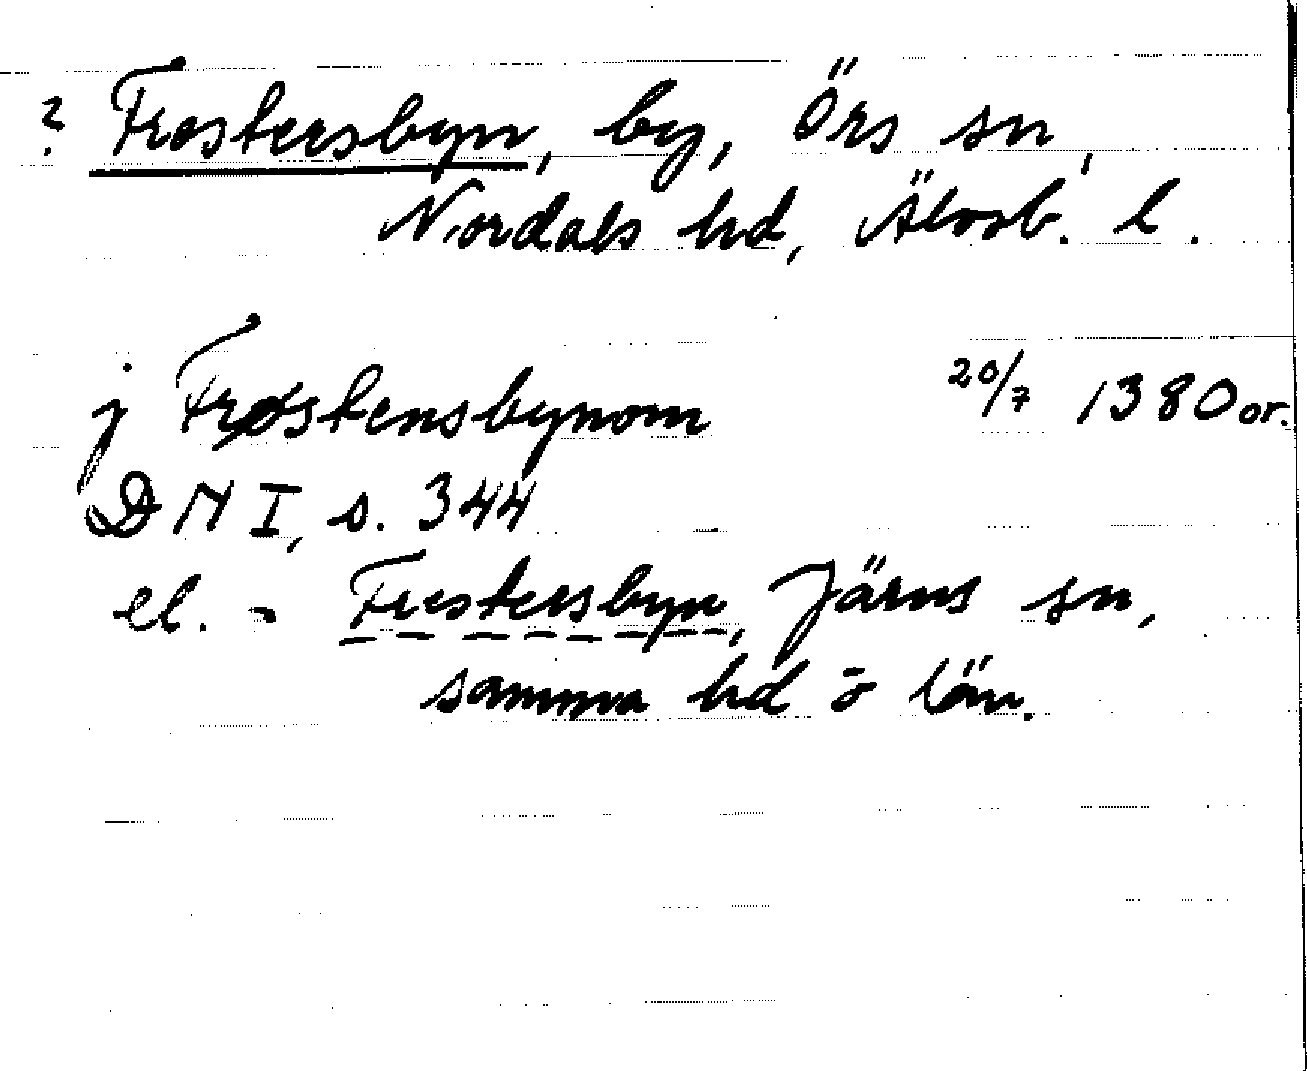 ? Frostersbyn, by, Örs sn,
Nordals hd, Älvsb. l.
j Frøstensbynom 20/7 1380 or.
DN I, s. 344
el. = Frestersbyn, Järns sn,
samma hd o län.